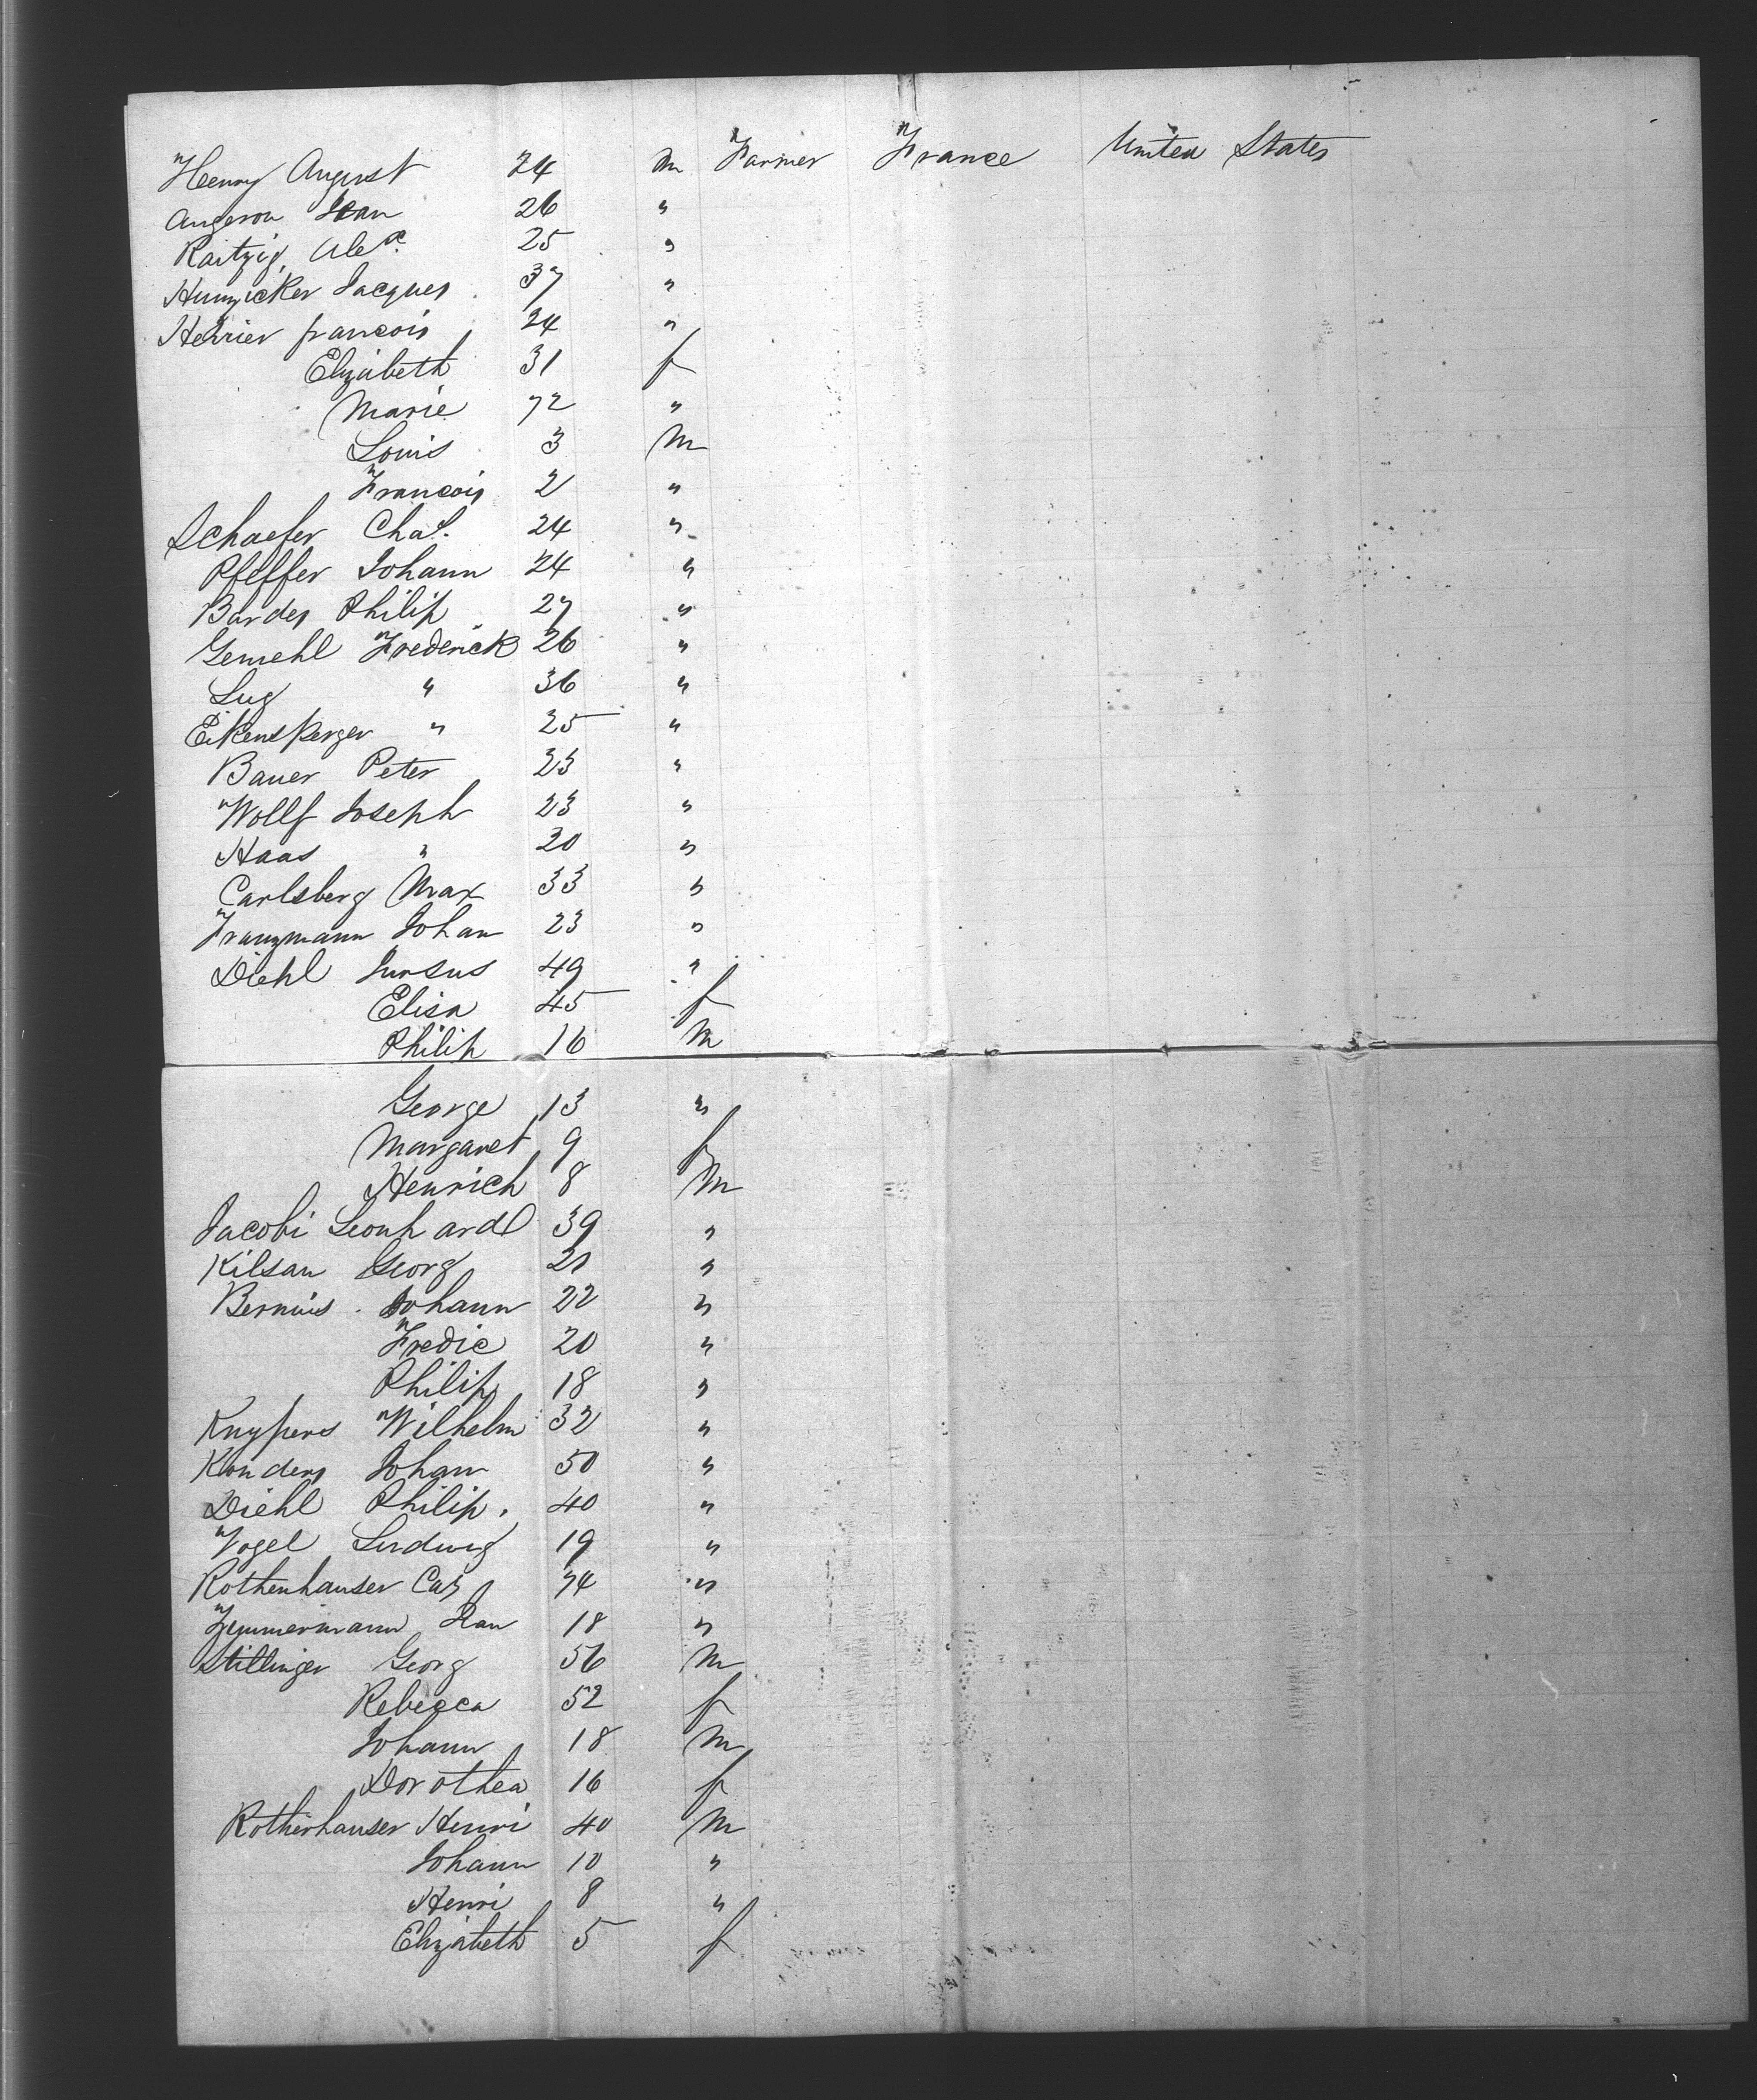 Henry August 24 m Farmer France United States
Angeron Jean 26 "
Raitzig, Alex. 25 "
Hunzicker Jacques 37 "
Henrier francois 24 "
Elizabeth 31 f
Marie 72 "
Louis 3 m
Francois 2 "
Schaefer Chas. 24 "
Pfeffer Johann 24 "
Bardes Philip 27 "
Gemehl Frederick 26 "
Lug " 36 "
Eikensperger " 25 "
Bauer Peter 23 "
Wollf Joseph 23 "
Haas " 20 "
Carlsberg Max 33 "
Franzmann Johan 23 "
Diehl 49 "
Elisa 45 f
Philip 16 m
George 13 "
Margaret 9 f
Henrich 8 m
Jacobi Leonhard 39 "
Kilsan Georg 21 "
Bernius Johann 22 "
Fredic 20 "
Philip 18 "
Knypers Wilhelm 32 "
Konders Johann 50 "
Diehl Philip. 40 "
Vogel Ludwig 19 "
Rothenhauser 74 "
Zimmermann 18 "
Stillinger Georg 56 m
Rebecca 52 f
Johann 18 m
Dorothea 16 f
Rothenhauser Henri 40 m
Johann 10 "
Henri 8 "
Elizabeth 5 f